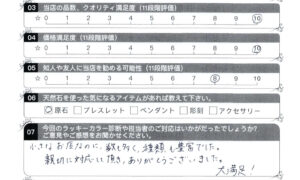 03 当店の品数、クオリティ満足度 (11段階評価)
0 1 2 3 4 5 6 7 8 9 10
04 価格満足度 (11段階評価)
0 1 2 3 4 5 6 7 8 9 10
05 知人や友人に当店を勧める可能性 (11段階評価)
0 1 2 3 4 5 6 7 8 9 10
06 天然石を使った気になるアイテムがあれば教えて下さい。
原石 ブレスレット ペンダント 彫刻 アクセサリー
07 今回のラッキーカラー診断や担当者のご対応はいかがだったでしょうか?
ご意見やご感想をお聞かせください。
小さなお店なのに、数も多く、種類も豊富でした。
親切に対応して頂き、ありがとうございました。
大満足!